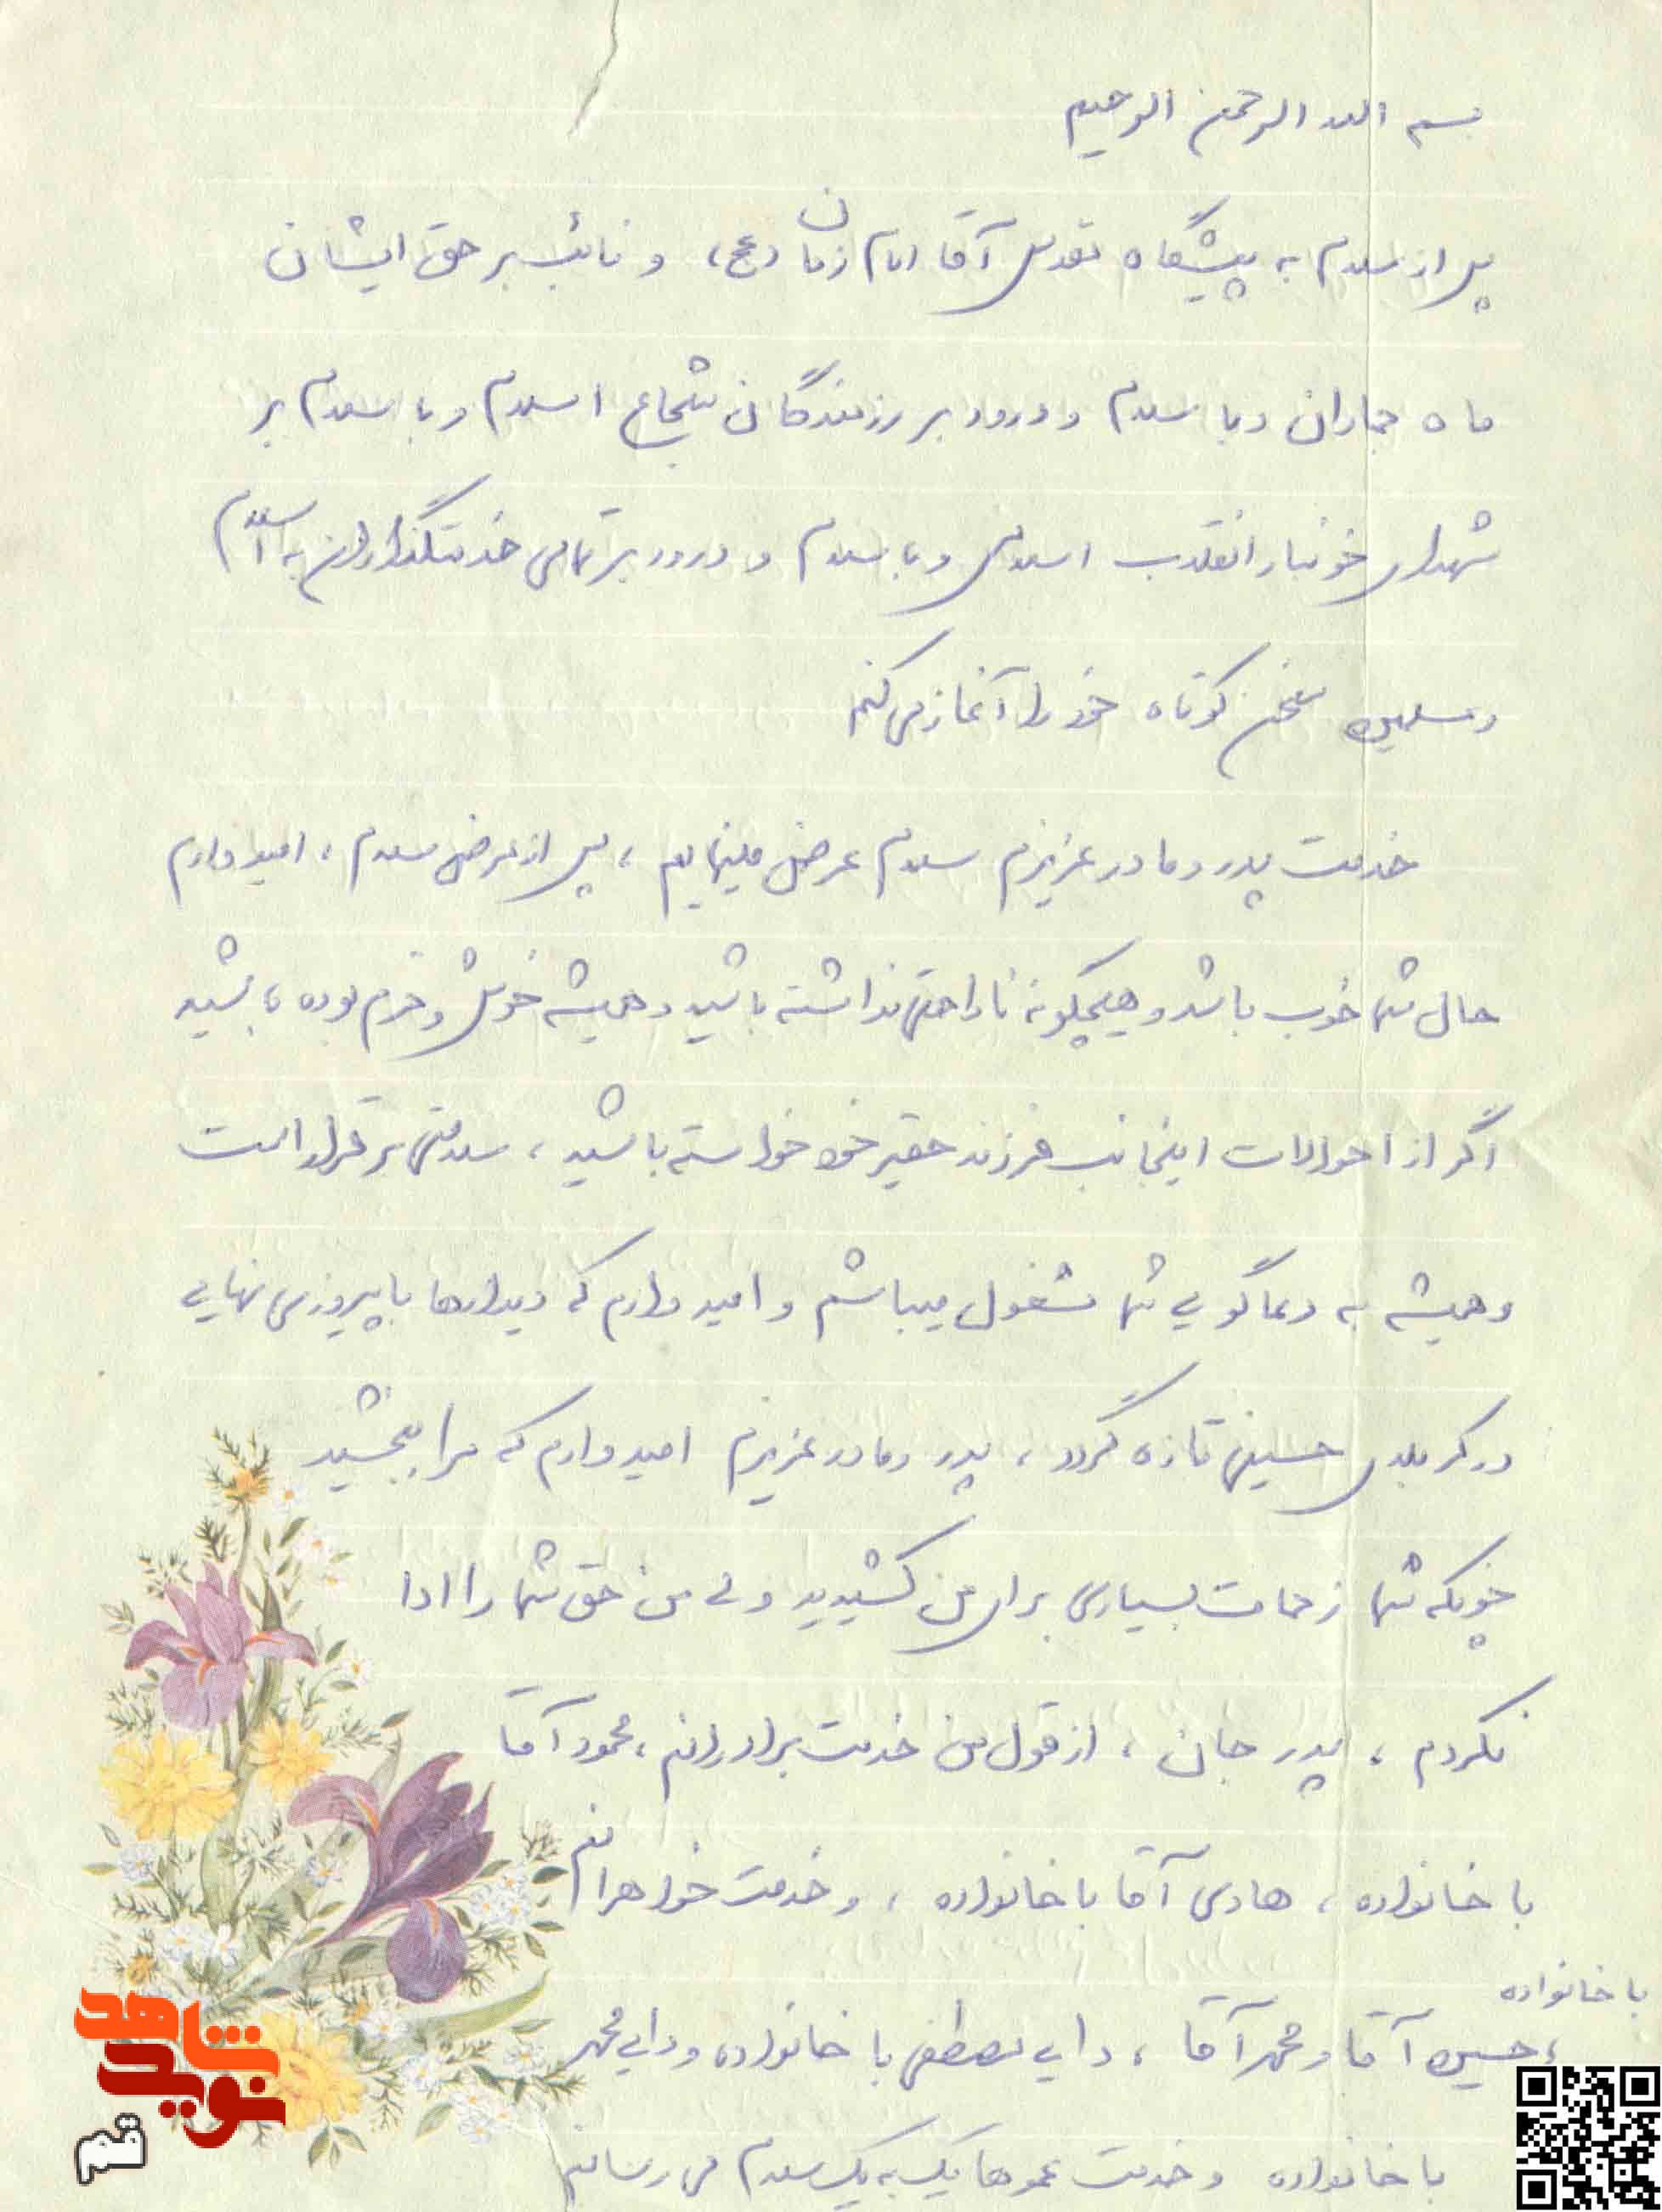 بسم الله الرحمن الرحیم
پس از سلام به پیشگاه مقدس آقا امام زمان (عج) و نائب بر حق ایشان
ماه جماران و با سلام و درود بر رزمندگان شجاع اسلام و با سلام بر
شهدای خونبار انقلاب اسلامی و با سلام و درود بر تمامی خدمتگذاران به اسلام
و مسلمین سخن کوتاه خود را آغاز می کنم
خدمت پدر و مادر عزیزم سلام عرض مینمایم ، پس از عرض سلام ، امیدوارم
حال شما خوب باشد و هیچگونه ناراحتی نداشته باشید و همیشه خوش و خرم بوده باشید
اگر از احوالات اینجانب فرزند حقیر خود خواسته باشید ، سلامتی برقرار است
و همیشه به دعاگویی شما مشغول میباشم و امیدوارم که دیدارها با پیروزی نهایی
در کربلای حسینی تازه گردد ، پدر و مادر عزیزم امیدوارم که مرا ببخشید
چونکه شما زحمات بسیاری برای من کشیدید ولی من حق شما را ادا
نکردم ، پدر جان ، از قول من خدمت برادرانم ، محمود آقا
با خانواده ، هادی آقا با خانواده ، و خدمت خواهرانم
با خانواده
، حسین آقا و محمد آقا ، دایی مصطفی با خانواده و دایی محمد
با خانواده و خدمت عموها یک به یک سلام می رسانم
شاهد
نوید
قم